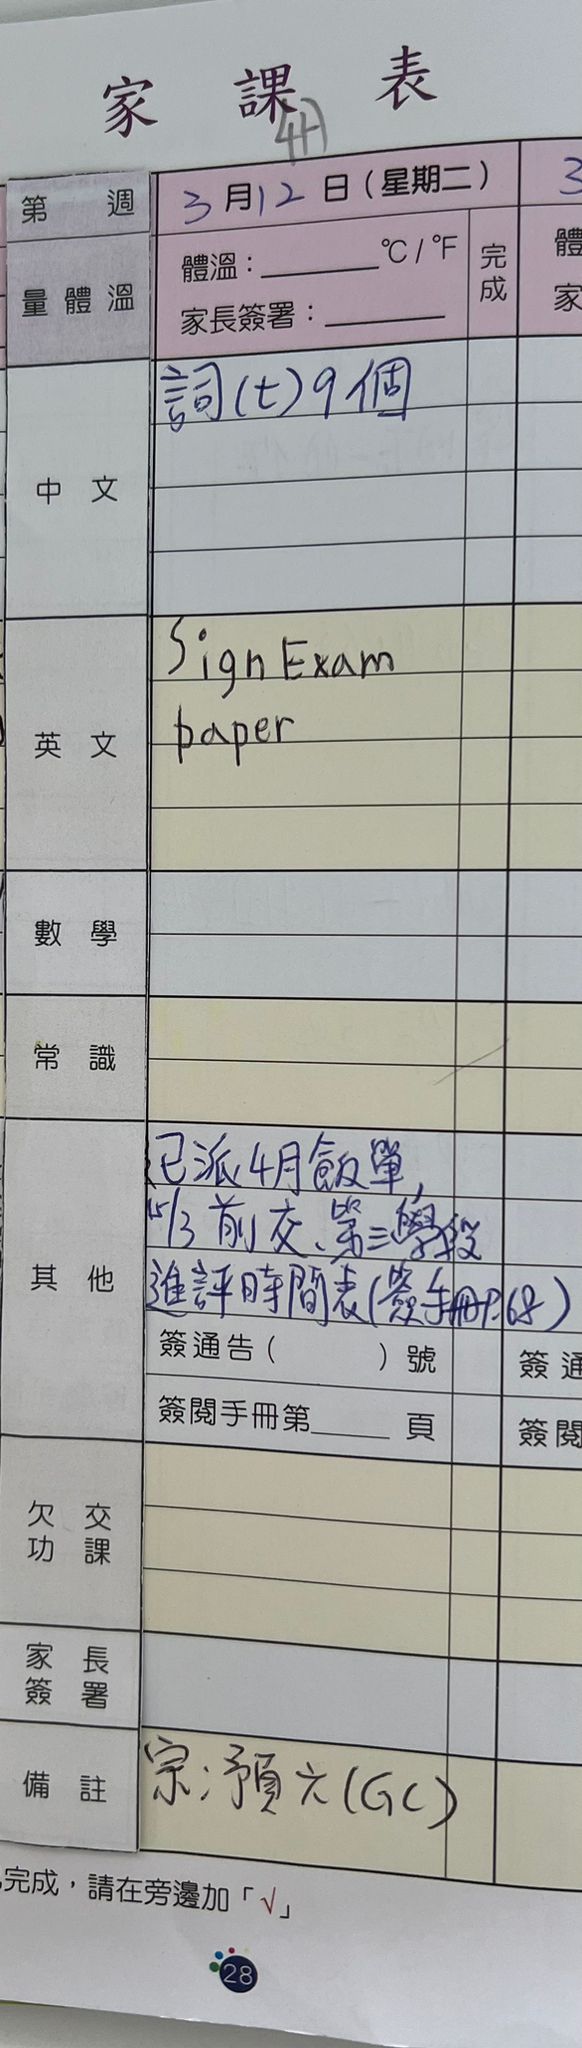 家 課 表
4H
第 週
3月12日(星期二)
3
量體溫
體溫：______°C/°F
家長簽署：______
完成
體
家
中文
詞(t)9個
英文
Sign Exam
paper
數學
常識
其他
已派4月飯單,
15/3前交、第三學段
進評時間表(簽手冊P.68)
簽通告( )號
簽通
簽閱手冊第____頁
簽閱
欠交
功課
家長
簽署
備註
宗:預六(GC)
完成，請在旁邊加「√」
28